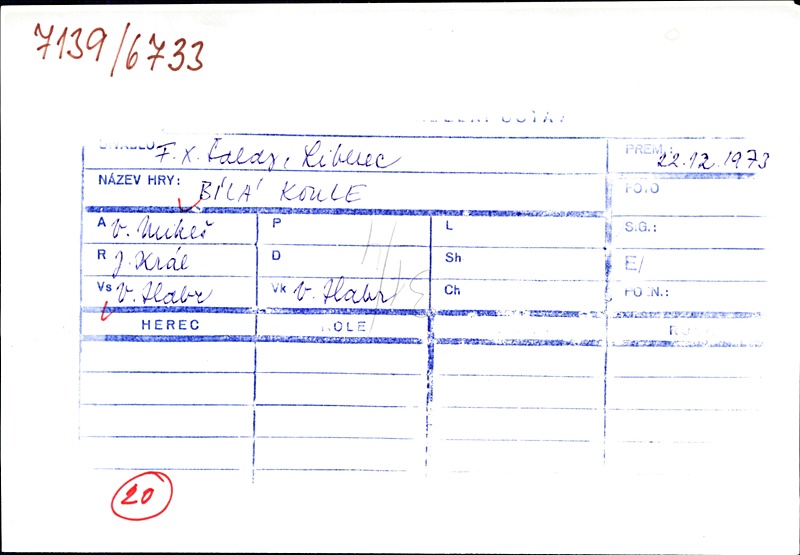 7139/6733
F. X. Šaldy, Liberec
PREM.: 22.12.1973
NÁZEV HRY: BÍLÁ KOULE
FOTO
A V. Mikeš P L S.G.:
R J. Král D Sh E/
Vs V. Habr Vk V. Habr Ch POZN.:
HEREC ROLE
20